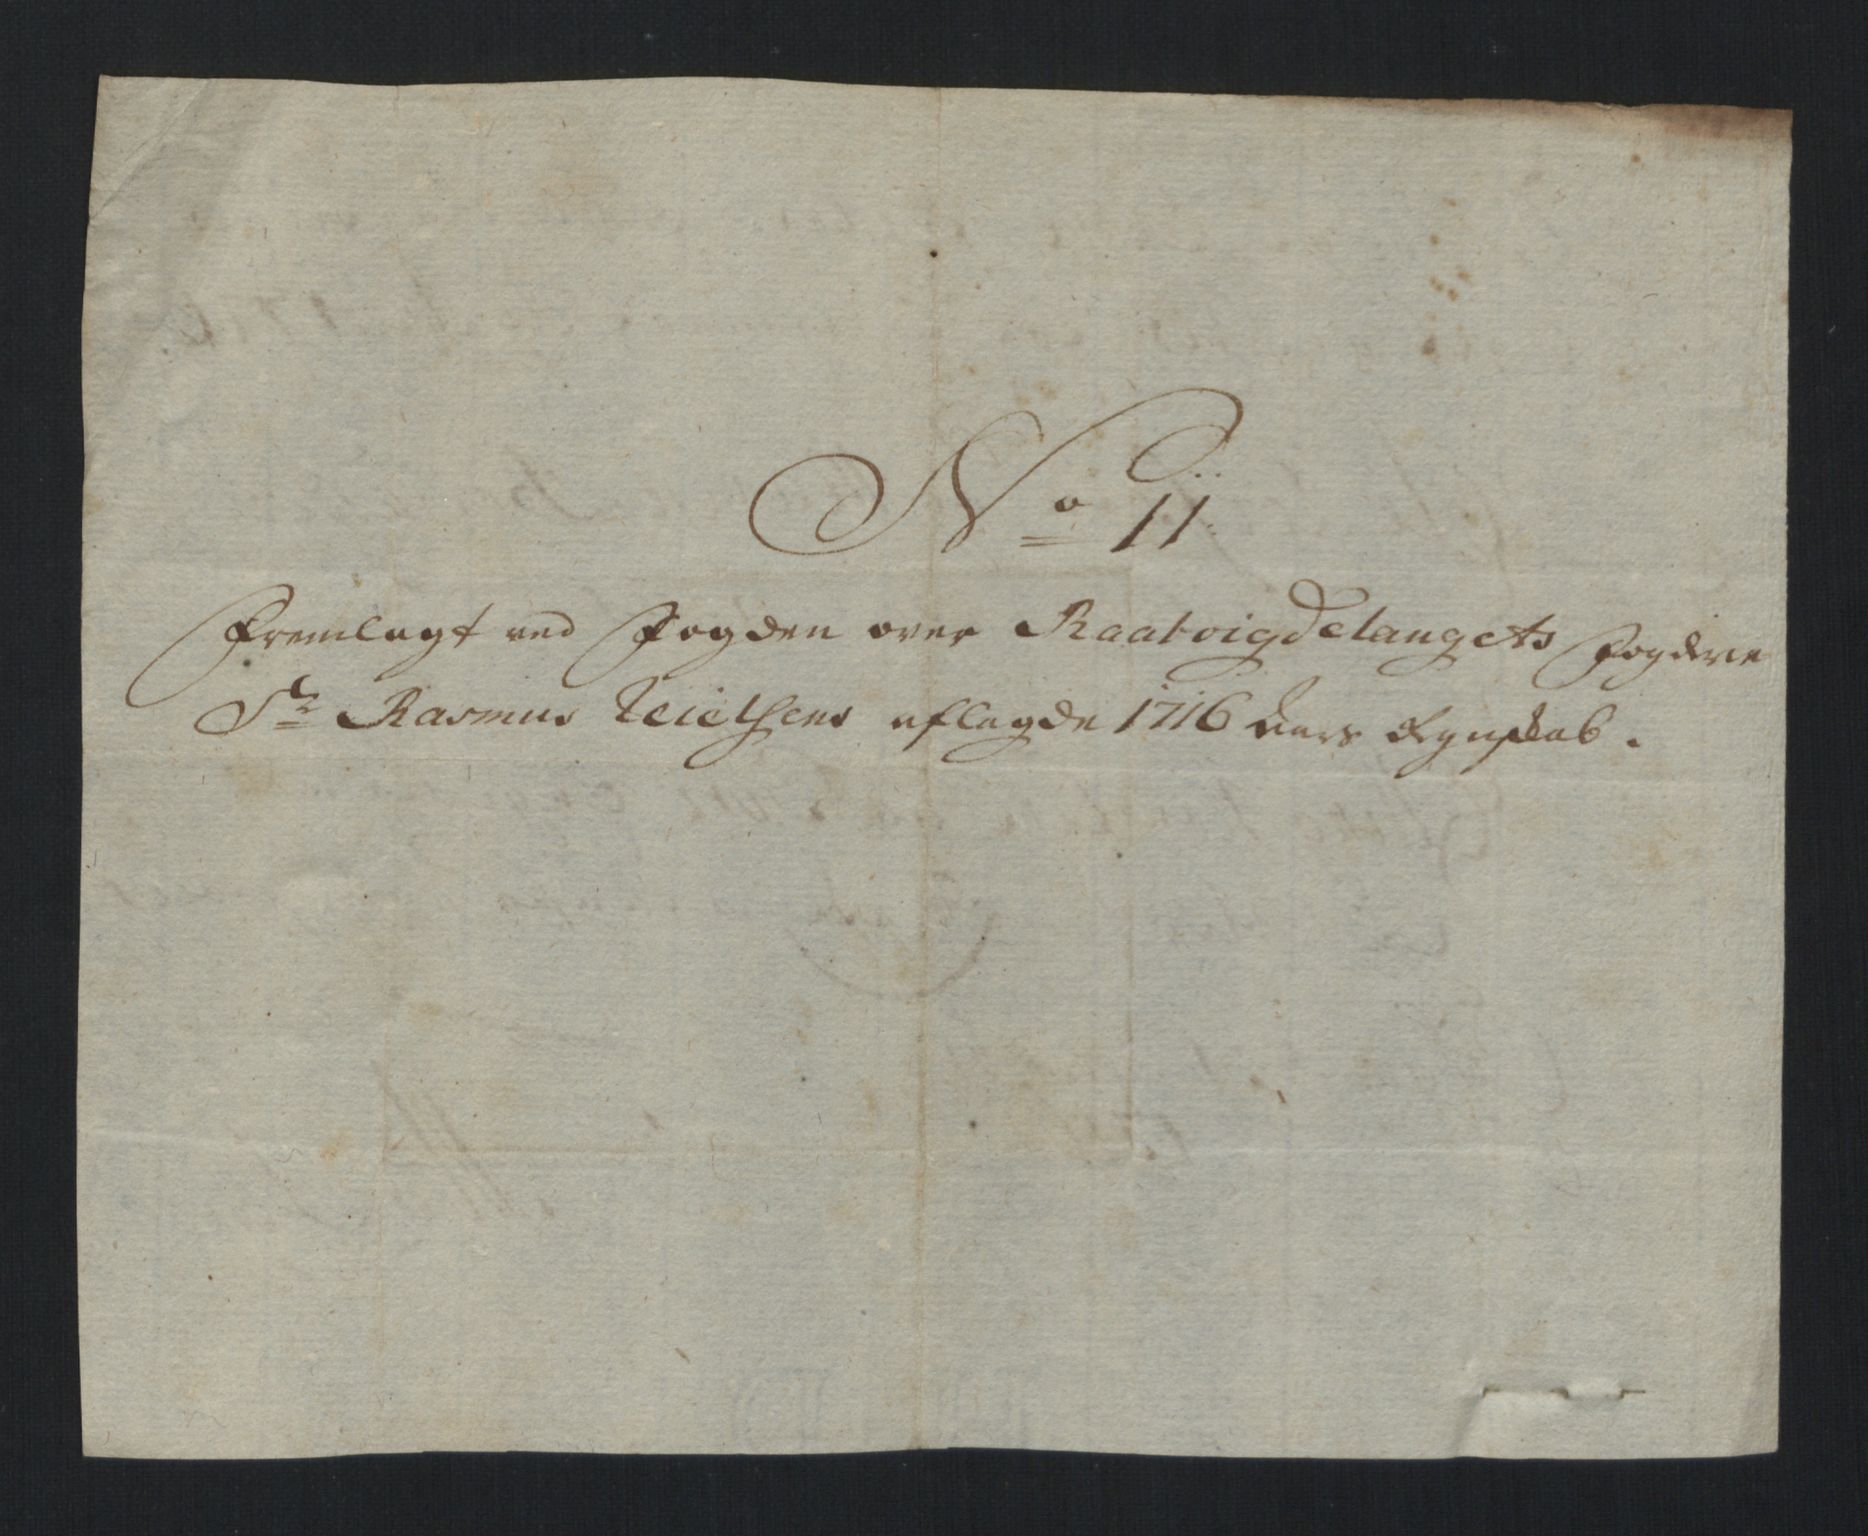 No 11
Fremlagt ved Fogden over Raabøigdelaugets Fogderie
Sr Rasmus Teiethens aflagde 1716 Aars Regnskab.